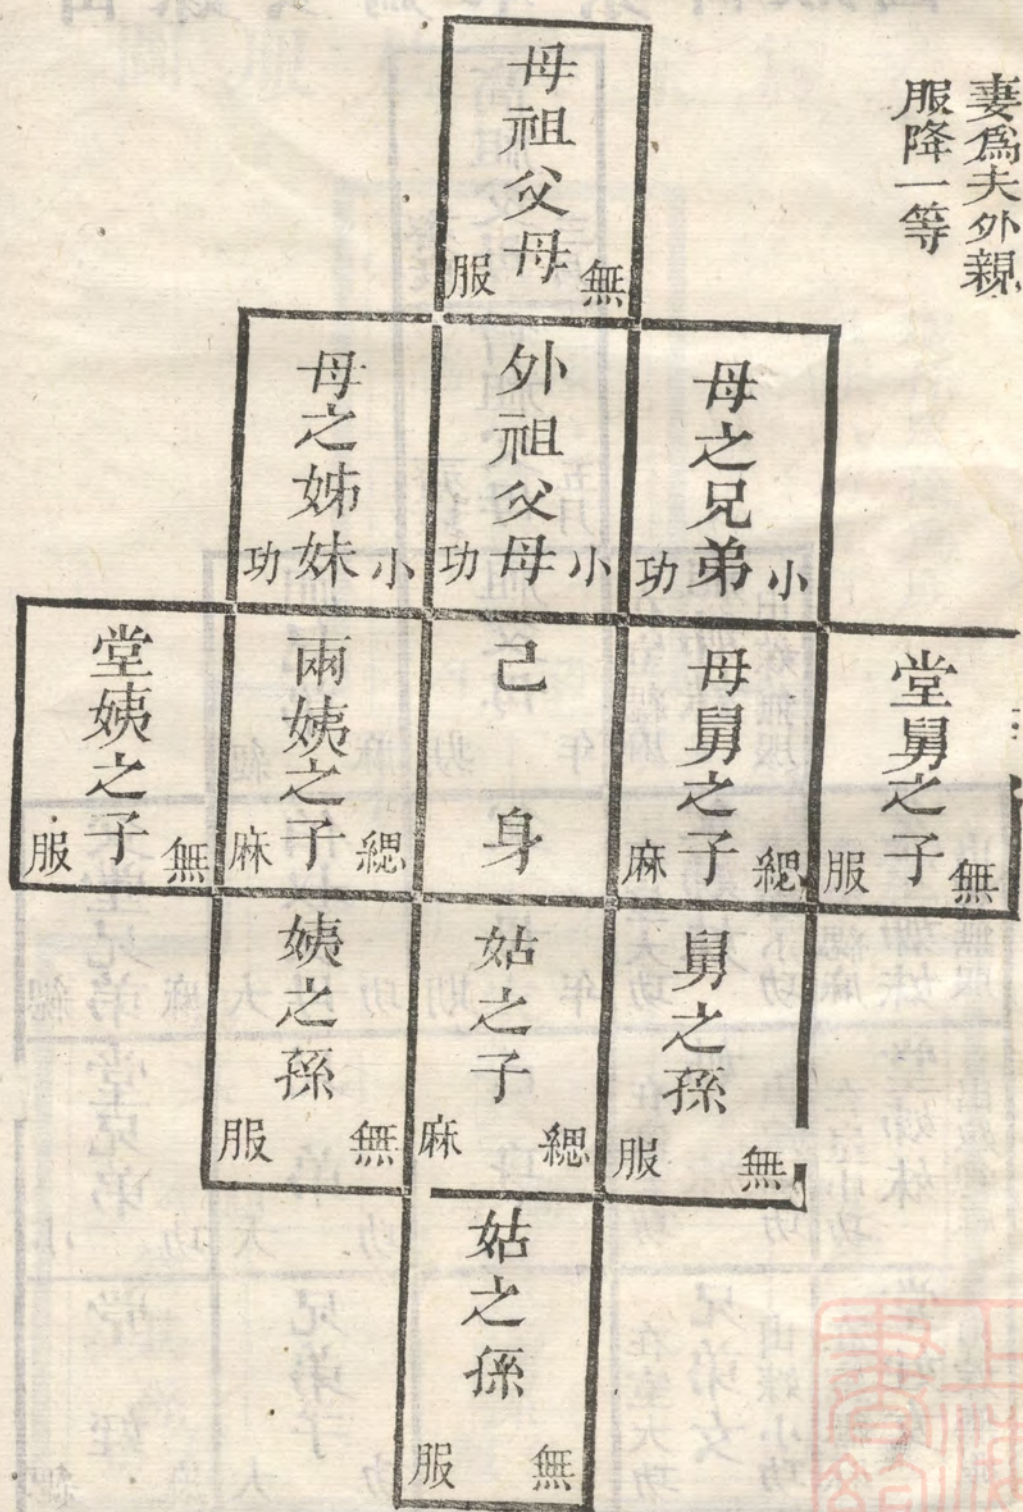 妻爲夫外親
服降一等
母祖父母
無服
母之兄弟
小功
外祖父母
小功
母之姊妹
小功
堂舅之子
無服
母舅之子
緦麻
己身
兩姨之子
緦麻
堂姨之子
無服
舅之孫
無服
姑之子
緦麻
姨之孫
無服
姑之孫
無服